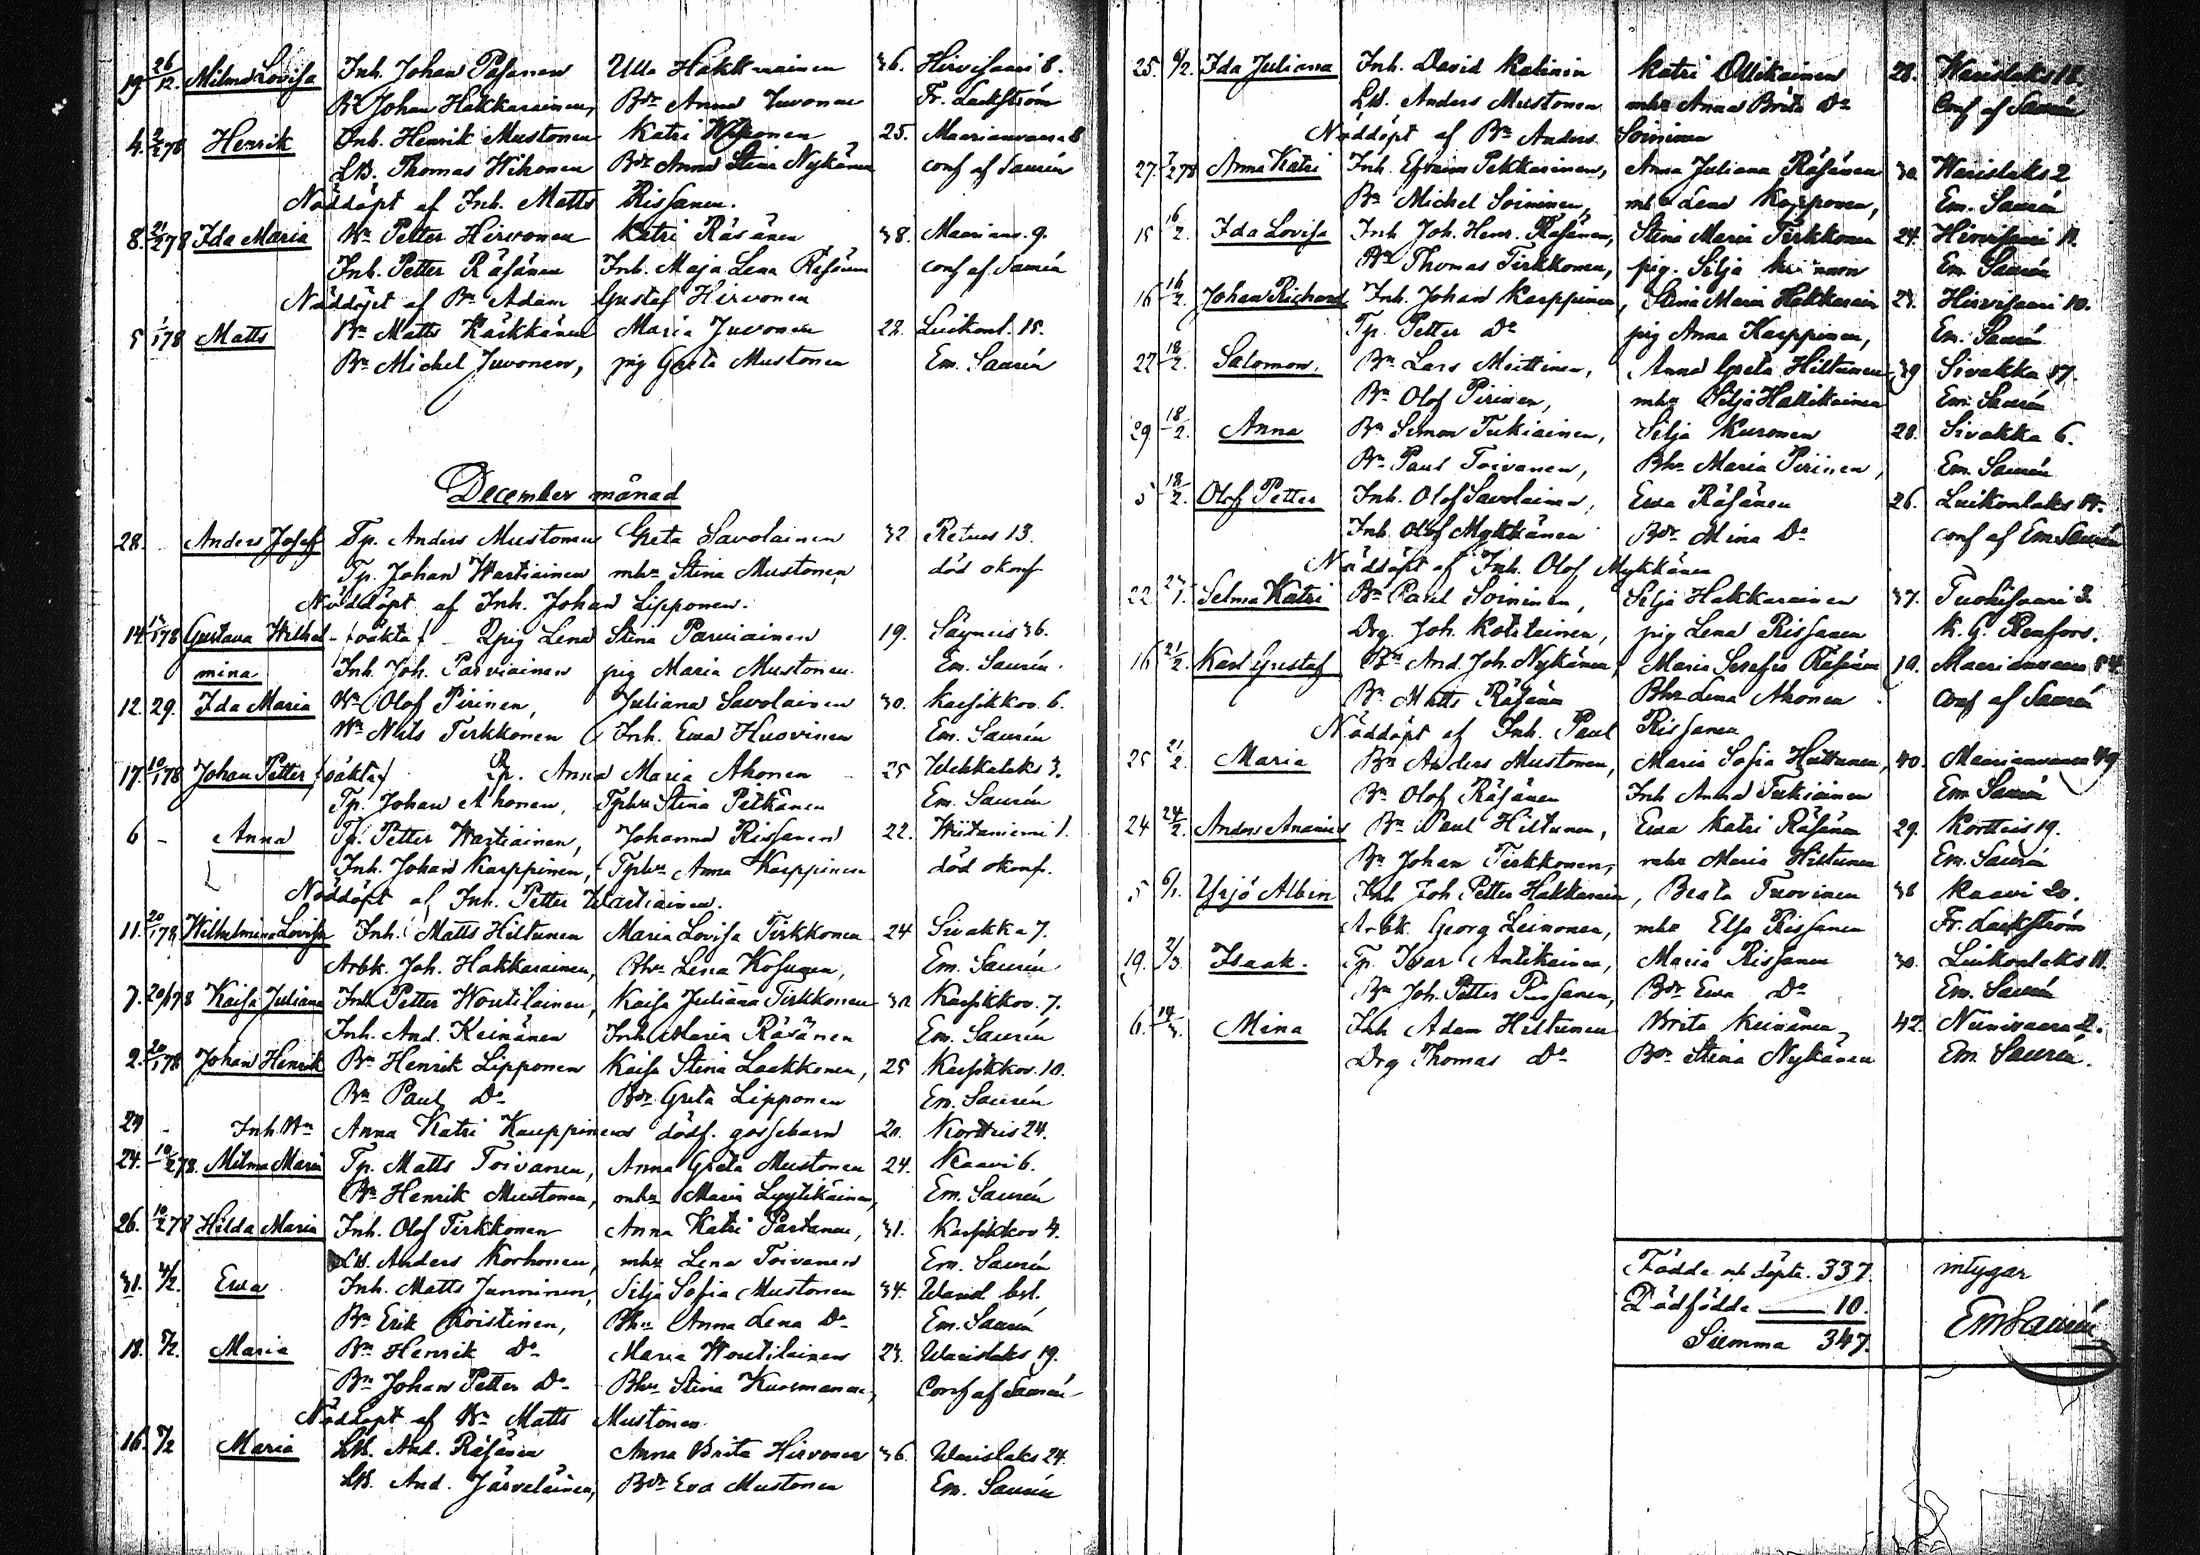 19 26/12. Milma Lovisa Inh. Johan Räsänen Ulla Hakkarainen 36. Hirvisaari 8.
Bn Johan Hakkarainen, Bdr Anna Juvonen Fr. Lackström
4. 2/2 78 Henrik Inh. Henrik Mustonen Katri Wihonen 25. Maarianvaara 8
LB. Thomas Wihonen Bdr Anna Stina Nykänen conf af Saurén
Nöddöpt af Inh. Matts Rissanen.
8. 21/2 78 Ida Maria Bn Petter Hirvonen Katri Räsänen 38. Maarianv. 9.
Inh. Petter Räsänen Inh. Maja Lena Räsänen conf af Saurén
Nöddöpt af Bn Adam Gustaf Hirvonen
5 1/1 78 Matts Bn Matts Kärkkänen Maria Juvonen 22. Luikonl. 15.
Bn Michel Juvonen, pig Greta Mustonen Em. Saurén
December månad
28. - Anders Josef Tp. Anders Mustonen Greta Savolainen 32 Retus 13.
Tp. Johan Wartiainen mhu Stina Mustonen död okonf
Nöddöpt af Inh. Johan Lipponen.
14. 1/1 78 Gustava Wilhel- (oäkta) - Qpig Lena Stina Parviainen 19. Säyneis 36.
mina Inh. Joh. Parviainen pig Maria Mustonen. Em. Saurén.
12. 29. Ida Maria Bn Olof Pirinen, Juliana Savolainen 30. Karsikkov. 6.
Bn Nils Tirkkonen Inh. Ewa Huovinen Em. Saurén
17. 10/1 78 Johan Petter (oäkta) Qp. Anna Maria Ahonen 25 Wehkalaks 3.
Tp. Johan Ahonen, Tphu Stina Pitkänen Em. Saurén
6 - Anna Tp. Petter Wartiainen, Johanna Rissanen 22. Wiitaniemi 1.
Inh. Johan Karppinen, Tphu Anna Karppinen död okonf.
Nöddöpt af Inh. Petter Wartiainen.
11. 20/1 78 Wilhelmina Lovisa Inh. Matts Hiltunen Maria Lovisa Tirkkonen 24 Sivakka 7.
Arbk. Joh. Hakkarainen, Bhu Lena Kosunen, Em. Saurén.
7. 20/1 78 Kaisa Juliana Inh Petter Woutilainen, Kaisa Juliana Tirkkonen 30 Karsikkov. 7.
Inh. And. Keinänen Inh Maria Räsänen Em. Saurén
2. 20/1 78 Johan Henrik Bn Henrik Lipponen Kaisa Stina Laakkonen, 25 Karsikkov. 10.
Bn Paul Do Bdr Greta Lipponen Em. Saurén
29 - Inh. Bn Anna Katri Kauppinens dödf. gossebarn 20. Korttis 24.
24. 10/2 78. Milma Maria Tp. Matts Toivanen, Anna Greta Mustonen 24. Kaavi 6.
Bn Henrik Mustonen, mhu Maria Lyytikäinen, Em. Saurén
26. 10/2 78 Hilda Maria Inh. Olof Tirkkonen Anna Katri Partanen, 31. Karsikkov 4.
LB. Anders Korhonen, mhu Lena Toivanen Em. Saurén
31. 4/2 Ewa Inh. Matts Junninen, Silja Sofia Mustonen 34. Warisl. bol.
Bn Erik Koistinen, Bhu Anna Lena Do Em. Saurén
18. 7/2 Maria Bn Henrik Do Maria Woutilainen 23. Warislaks 19.
Bn Johan Petter Do Bhu Stina Kuosmanen, Conf af Saurén
Nöddöpt af Bn Matts Mustonen
16. 7/2 Maria LB. And. Räsänen Anna Brita Hirvonen 36 Warislaks 24.
LB. And. Järveläinen, Bdr Eva Mustonen Em. Saurén
25. 6/2. Ida Juliana Inh. David Kalinin Katri Ollikainen 28. Warislaks 18.
LB. Anders Mustonen mhu Anna Brita Do Conf af Saurén
Nöddöpt af Bn Anders Soininen
27. 7/2 78 Anna Katri Inh. Efraim Pekkarinen, Anna Juliana Räsänen 30. Warislaks 2
Bn Michel Soininen, mhu Lena Kopponen, Em. Saurén
15 16/2. Ida Lovisa Inh. Joh. Henr. Räsänen, Stina Maria Tirkkonen 24. Hirvisaari 11.
Bn Thomas Tirkkonen, pig. Silja Em. Saurén
16 16/2. Johan Richard Inh. Johan Karppinen, Stina Maria Hakkarain 23. Hirvisaari 10.
Tp. Petter Do pig Anna Karppinen, Em. Saurén
22 18/2. Salomon. Bn Lars Miettinen, Anna Greta Hiltunen 39 Sivakka 57.
Bn Olof Pirinen, mhu Silja Hallikainen Em. Saurén
29 18/2. Anna Bn Simon Tukiainen, Silja Kuronen 20. Sivakka 6.
Bn Paul Toivanen, Bhu Maria Pirinen, Em. Saurén
5 18/2. Olof Petter Inh. Olof Savolainen, Ewa Räsänen 26. Luikonlaks 14.
Inh. Olof Mykkänen Bdr Mina Do conf af Em Saurén
Nöddöpt af Inh. Olof Mykkänen
22 27/1. Selma Katri Bn Paul Soininen, Silja Hakkarainen 37. Tuohisaari 3.
Drg. Joh. Kotilainen, pig Lena Rissanen K. G. Renfors.
16 21/2. Karl Gustaf Bn And. Joh. Nykänen, Maria Serefia Räsänen 10. Maarianvaara 54.
Bn Matts Räsänen Bhu Lena Ahonen Conf af Saurén
Nöddöpt af Inh. Paul Rissanen
25 21/2. Maria Bn Anders Mustonen, Maria Sofia Huttunen, 40. Maarianvaara 49
Bn Olof Räsänen Inh Anna Tukiainen Em Saurén
24 24/2. Anders Ananias Bn Paul Hiltunen, Ewa Katri Räsänen 29. Korttis 19.
Bn Johan Tirkkonen, mhu Maria Hiltunen Em. Saurén
5 6/1. Yrjö Albin Inh Joh Petter Hakkarain, Beata Tuovinen 36 Kaavi 20.
Arbk. Georg Leinonen, mhu Elsa Rissanen Fr. Lackström
19. 2/3. Isaak. Tp. Ivar Antikainen, Maria Rissanen 30. Luikonlaks 11.
Bn Joh. Petter Rissanen, Bdr Ewa Do Em. Saurén
6. 14/3. Mina Inh Adam Hiltunen Brita Keinänen 42. Niinivaara 2.
Drg Thomas Do Bdr Stina Nykänen Em. Saurén.
Födda och döpta. 337. intygar
Dödfödda 10. Em Saurén
Summa 347.